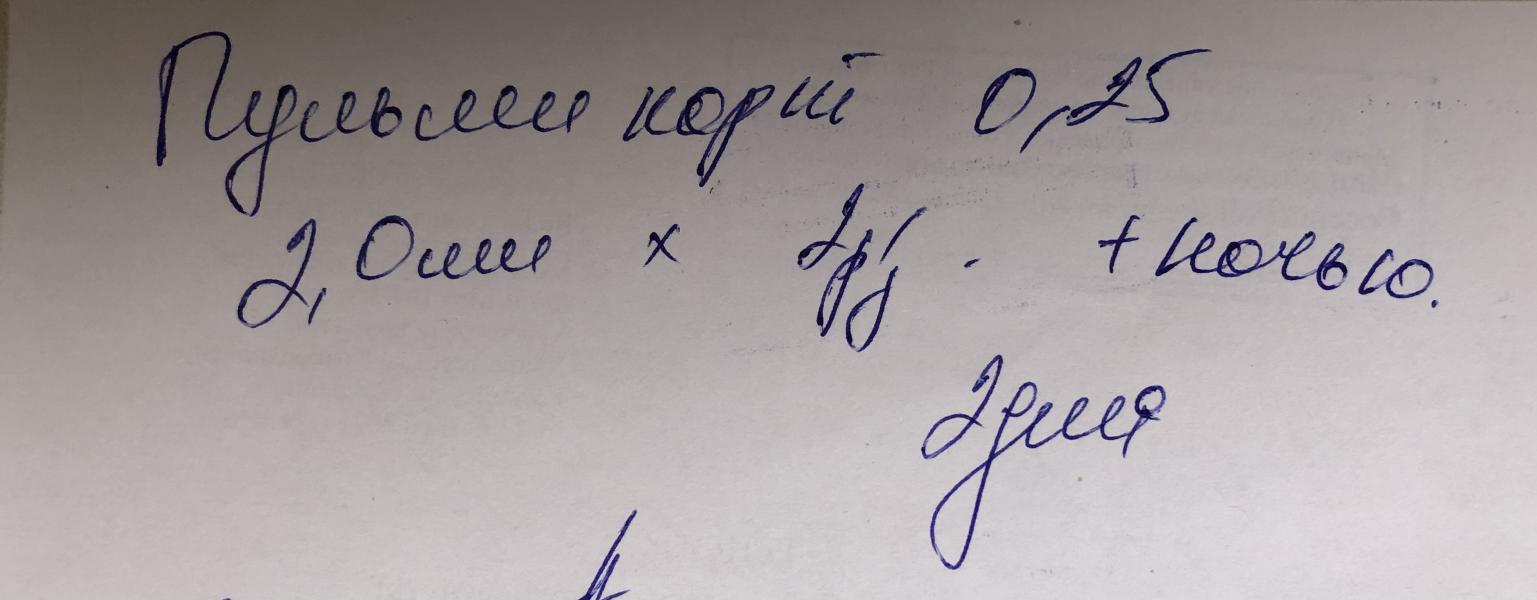 Пульмикорт 0,25
2,0мл х 2р/д. + ночью.
2дня